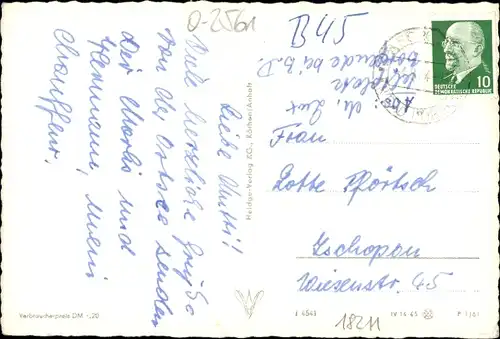 O-2561
B45
Liebe Mutti!
Viele herzliche Grüße
von der Ostsee senden
Dir
und
Hermann, Mein
Chauffeur.
Abs:
Frau
Lotte Pförtsch
Zschopau
Wiesenstr. 45
10
DEUTSCHE
DEMOKRATISCHE REPUBLIK
Heldge-Verlag KG., Köthen/Anhalt
Verbraucherpreis DM -,20
J 4541
IV 14 45
P 1/61
18211